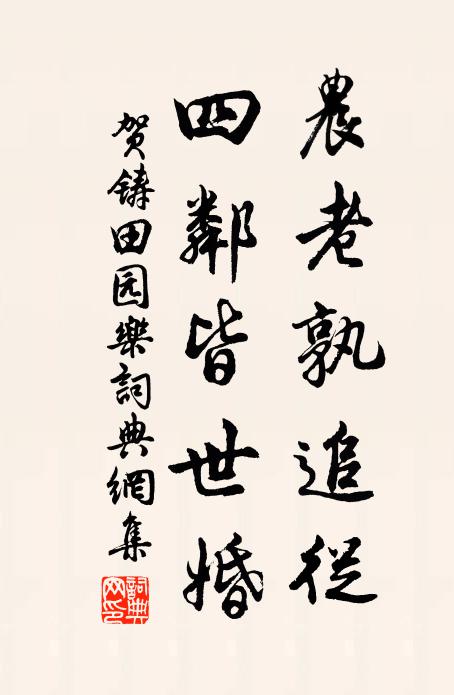 農老孰追從
四鄰皆世婚
贺铸田园樂詞典網集
詞典網印